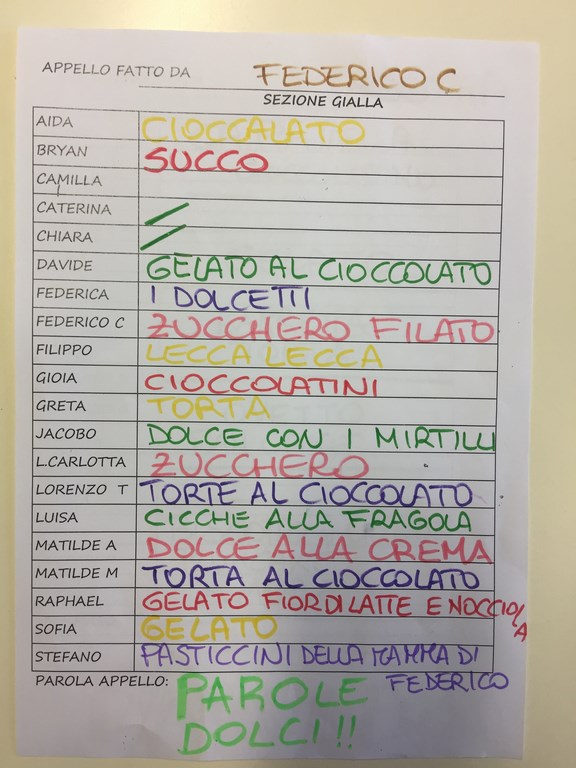 APPELLO FATTO DA FEDERICO C
SEZIONE GIALLA
AIDA CIOCCALATO
BRYAN SUCCO
CAMILLA
CATERINA /
CHIARA /
DAVIDE GELATO AL CIOCCOLATO
FEDERICA I DOLCETTI
FEDERICO C ZUCCHERO FILATO
FILIPPO LECCA LECCA
GIOIA CIOCCOLATINI
GRETA TORTA
JACOBO DOLCE CON I MIRTILLI
L.CARLOTTA ZUCCHERO
LORENZO T TORTE AL CIOCCOLATO
LUISA CICCHE ALLA FRAGOLA
MATILDE A DOLCE ALLA CREMA
MATILDE M TORTA AL CIOCCOLATO
RAPHAEL GELATO FIORDILATTE E NOCCIOLA
SOFIA GELATO
STEFANO PASTICCINI DELLA MAMMA DI
FEDERICO
PAROLA APPELLO: PAROLE
DOLCI!!